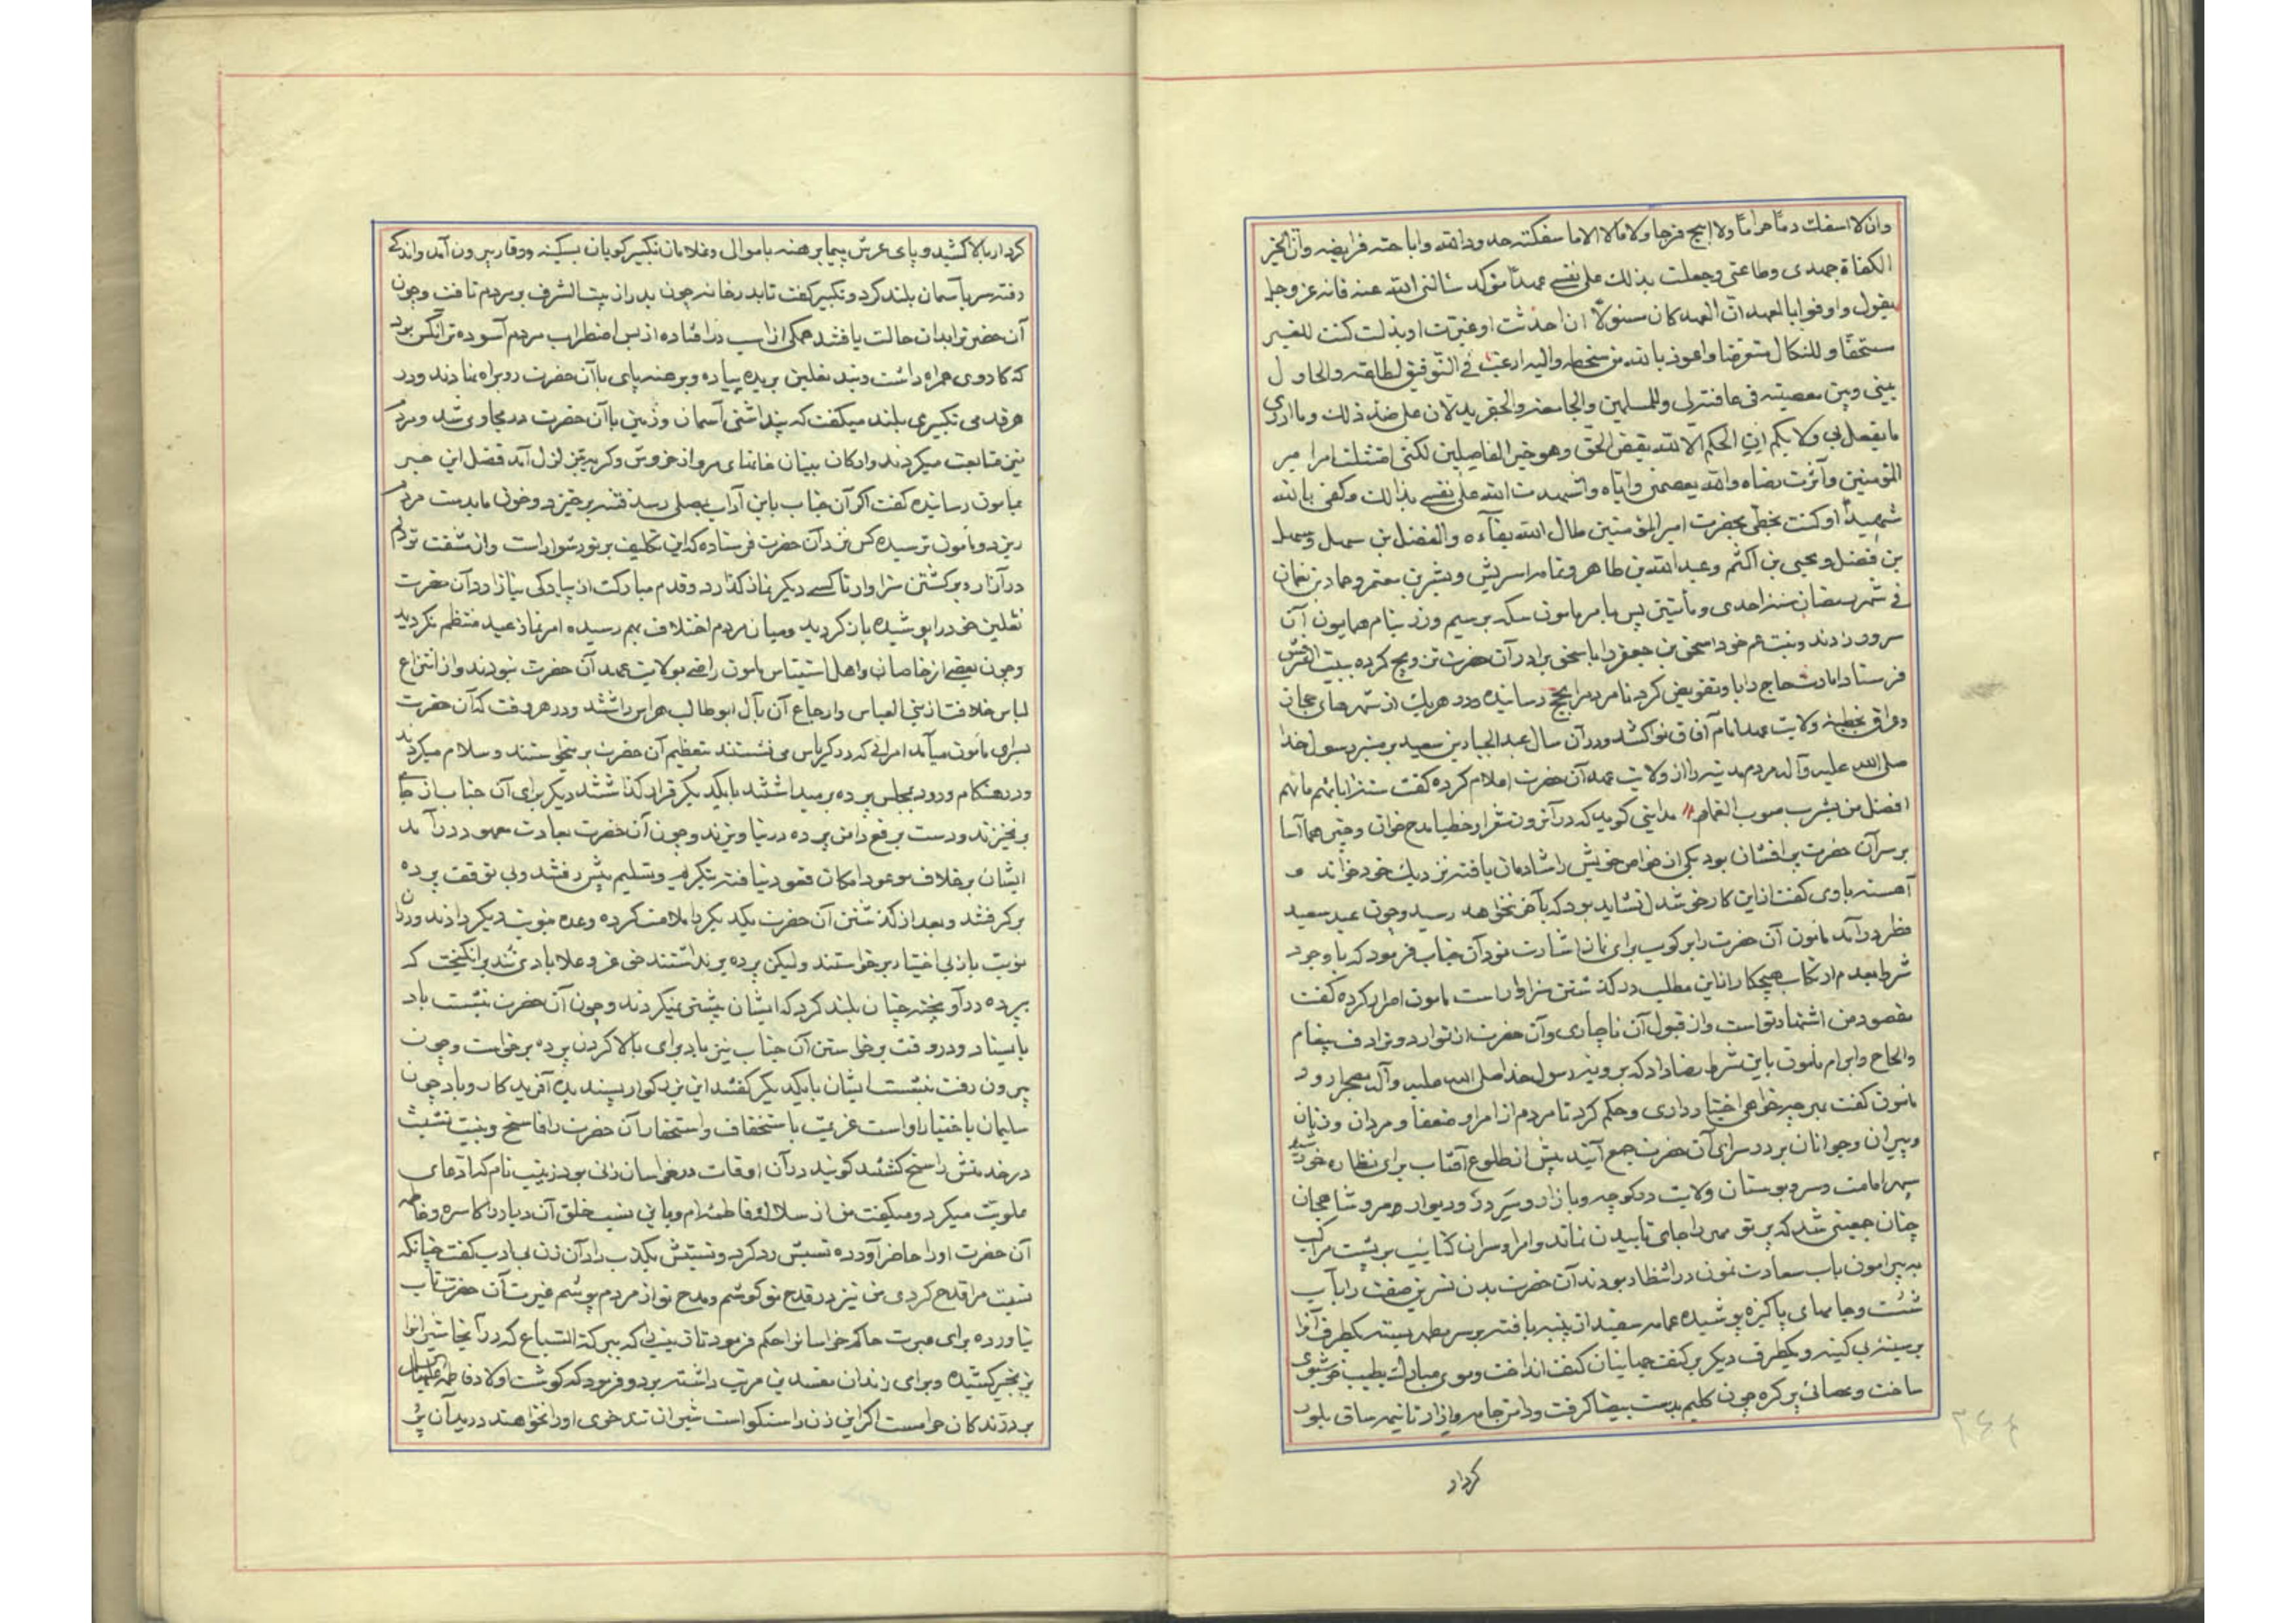 وان لا اسفك دما حراما ولا ابیح فرجا ولا مالا الا ما سفکته حدود الله واباحته فرایضه وان اتخیر
الکفاة جهدی وطاعتی وجعلت بذلک علی نفسی عهدا مؤکدا سئالنی الله عنه فانه عز وجل
یقول واوفوا بالعهد ان العهد کان مسئولا ان احدثت او غیرت او بدلت کنت للغیر
مستحقا وللنکال متعرضا واعوذ بالله من سخطه والیه ارغب فی التوفیق لطاعته والحاول
بینی وبین معصیته فی عافیة لی وللمسلمین والجامعه والجفر یدلان علی ضد ذلک وما ادری
ما یفعل بی ولا بکم ان الحکم الا لله یقض الحق وهو خیر الفاصلین لکنی امتثلت امر امیر
المؤمنین وآثرت رضاه والله یعصمنی وایاه واشهدت الله علی نفسی بذالک وکفی بالله
شهیدا وکتبت بخطی بحضرت امیر المؤمنین طال الله بقآءه والفضل بن سهل وسهل
بن فضل ویحیی بن اکثم وعبد الله بن طاهر وثمامه اسریش وبشر بن معتمر وحماد بن نعمان
فی شهر رمضان سنه احدی ومأتین پس بامر مامون سکه بر سیم وزر بنام همایون آن
سرور زدند وبنت عم خود اسحق بن جعفر را با سحق برادر آن حضرت تزویج کرده ببیت الشرفش
فرستاد امارت حاج را باو تفویض کرد تا مردم را بحج رسانیده ودر هر یک از شهرهای حجاز
وعراق بخطبه ولایت عهد امام آفاق نوا کشد ودر آن سال عبد الجبار بن سعید بر منبر رسول خدا
صلی الله علیه وآله مردم مدینه را از ولایت عهد آن حضرت اعلام کرده گفت ستة اباءهم ما هم
افضل من یشرب صوب الغمام مداینی کوید که در آنروز شعرا وخطبا مدح خوان وچتر هما آسا
بر سر آن حضرت پر افشان بود یکی از خواص خویش را شادمان یافته نزدیک خود خواند و
آهسته باوی گفت از این کار خوشدل نشاید بود که بآخر نخواهد رسید وچون عید سعید
فطر درآمد مامون آن حضرت را برکوب برای نماز اشارت نمود آن جناب فرمود که با وجود
شرط بعدم ارتکاب هیچکار از این مطلب در گذشتن سزاوار است مامون اصرار کرده گفت
مقصود من اشتهار تو است واز قبول آن ناچاری وآن حضرت از توارد وترادف پیغام
والحاح وابرام مامون باین شرط رضا داد که بر ویزه رسول خدا صلی الله علیه وآله بصحرا رود
مامون گفت بهر چیز خواهی اختیار داری وحکم کرد تا مردم از امرا وضعفا ومردان وزنان
وپیران وجوانان بر در سرای آن حضرت جمع آیند پیش از طلوع آفتاب برای نظاره خورشید
سپهر امامت وسرو بوستان ولایت در کوچه وبازار ودر ودیوار مرو شاهجان
چنان جمعیتی شد که پرتو مهر را جای تابیدن نماند وامرا وسران کتایب بر پشت مراکب
به پیرامون باب سعادت نمون در انتظار بودند آن حضرت بدن نسرین صفت را بآب
شست وجامهای پاکیزه پوشیده عمامه سفید از پنبه بافته بر سر مطهر بسته یکطرف آنرا
بر سینه بی کینه ویکطرف دیگر بر کتف انداخت وموی مبارک بطیب خوشبوی
ساخت وعصائی پر گره چون کلیم بدست بیضا گرفت ودامن جامه وازار تا نیمه ساق بلور
کردار
کردار بالا کشید وپای عرش پیما برهنه با موالی وغلامان تکبیر کویان بسکینه ووقار بیرون آمد واندکی
رفته سر بآسمان بلند کرد وتکبیر گفت تا بدر خانه چون بدر از بیت الشرف بر مردم تافت وچون
آن حضرت را بدان حالت یافتند همگی از اسب در افتاده از بس اضطراب مردم آسوده تر آنکس بود
که کاردی همراه داشت وبند نعلین بریده پیاده وبرهنه پای با آن حضرت رو براه نهادند ودر
هر قدمی تکبیری بلند میگفت که پنداشتی آسمان وزمین با آن حضرت در مجاوبی شد ومردم
نیز متابعت میکردند وارکان بنیان خانهای مرو از خروش وگریه بتزلزل آمد فضل این خبر
بمامون رسانیده گفت اگر آن جناب باین آداب بمصلی رسد فتنه برخیزد وخون ما بدست مردم
ریزد ومامون ترسیده کس نزد آن حضرت فرستاده که این تکلیف بر تو دشوار است واز مشقت تو دلم
در آزار ه برگشتن سزاوار تا کسی دیگر نماز گذارد وقدم مبارکت از پیادگی نیازارد آن حضرت
نعلین خود را پوشیده باز گردید ومیان مردم اختلاف بهم رسیده امر نماز عید منتظم نگردید
وچون بعضی از خاصان واهل استیناس مامون راضی بولایت عهد آن حضرت نبودند واز انتزاع
لباس خلافت از بنی العباس وارجاع آن بآل ابوطالب هراس داشتند ودر هر وقت که آن حضرت
بسرای مامون میآمد امرائی که در کریاس می نشستند بتعظیم آن حضرت بر میخواستند وسلام میکردند
ودر هنگام ورود بمجلس پرده بر میداشتند با یکدیگر قرار گذاشتند دیگر برای آن جناب از جای
بر نخیزند ودست بر رفع دامن پرده در نیاویزند وچون آن حضرت بعادت معهود در آمد
ایشان بر خلاف موعود امکان قعود نیافته بتکریم وتسلیم پیش رفتند وبی توقف پرده
بر گرفتند وبعد از گذشتن آن حضرت یکدیگر را ملامت کرده وعده بنوبت دیگر دادند ودر آن
نوبت باز بی اختیار برخواستند ولیکن پرده بر نداشتند حق عز وعلا بادی تند بر انگیخت که
پرده در آویخته چنان بلند کرد که ایشان پیشتر میکردند وچون آن حضرت بنشست باد
بایستاد ودر وقت برخواستن آن جناب نیز باد برای بالا کردن پرده برخواست وچون
بیرون رفت بنشست ایشان با یکدیگر گفتند این بزرگوار پسندیده آفریدگار وباد چون
سلیمان باختیار اوست عزیمت باستخفاف واستحقار آن حضرت را فاسخ ونیت تشبث
در خدمتش راسخ گشتند کویند در آن اوقات در خراسان زنی بود زینب نام که ادعای
علویت میکرد ومیگفت من از سلاله فاطمه ام وباین نسب خلق آن دیار را کاسره وخاصه
آن حضرت او را حاضر آورده نسبش رد کرد ونسبتش بکذب داد آن زن بی ادب گفت چنانکه
نسبت مرا قدح کردی من نیز در قدح تو کوشم ومدح تو از مردم پوشم غیرت آن حضرت تاب
نیاورده برای عبرت حاکم خراسانرا حکم فرمود تا زینب را که ببرکة السباع که در آنجا شیرانرا
بزنجیر کشیده وبرای زندان مفسدین مرتب داشته برد وفرمود که گوشت اولاد فاطمه علیها السلام
بر درندگان حرامست اگر این زن راستگو است شیران تند خوی او را نخواهند درید آن پر